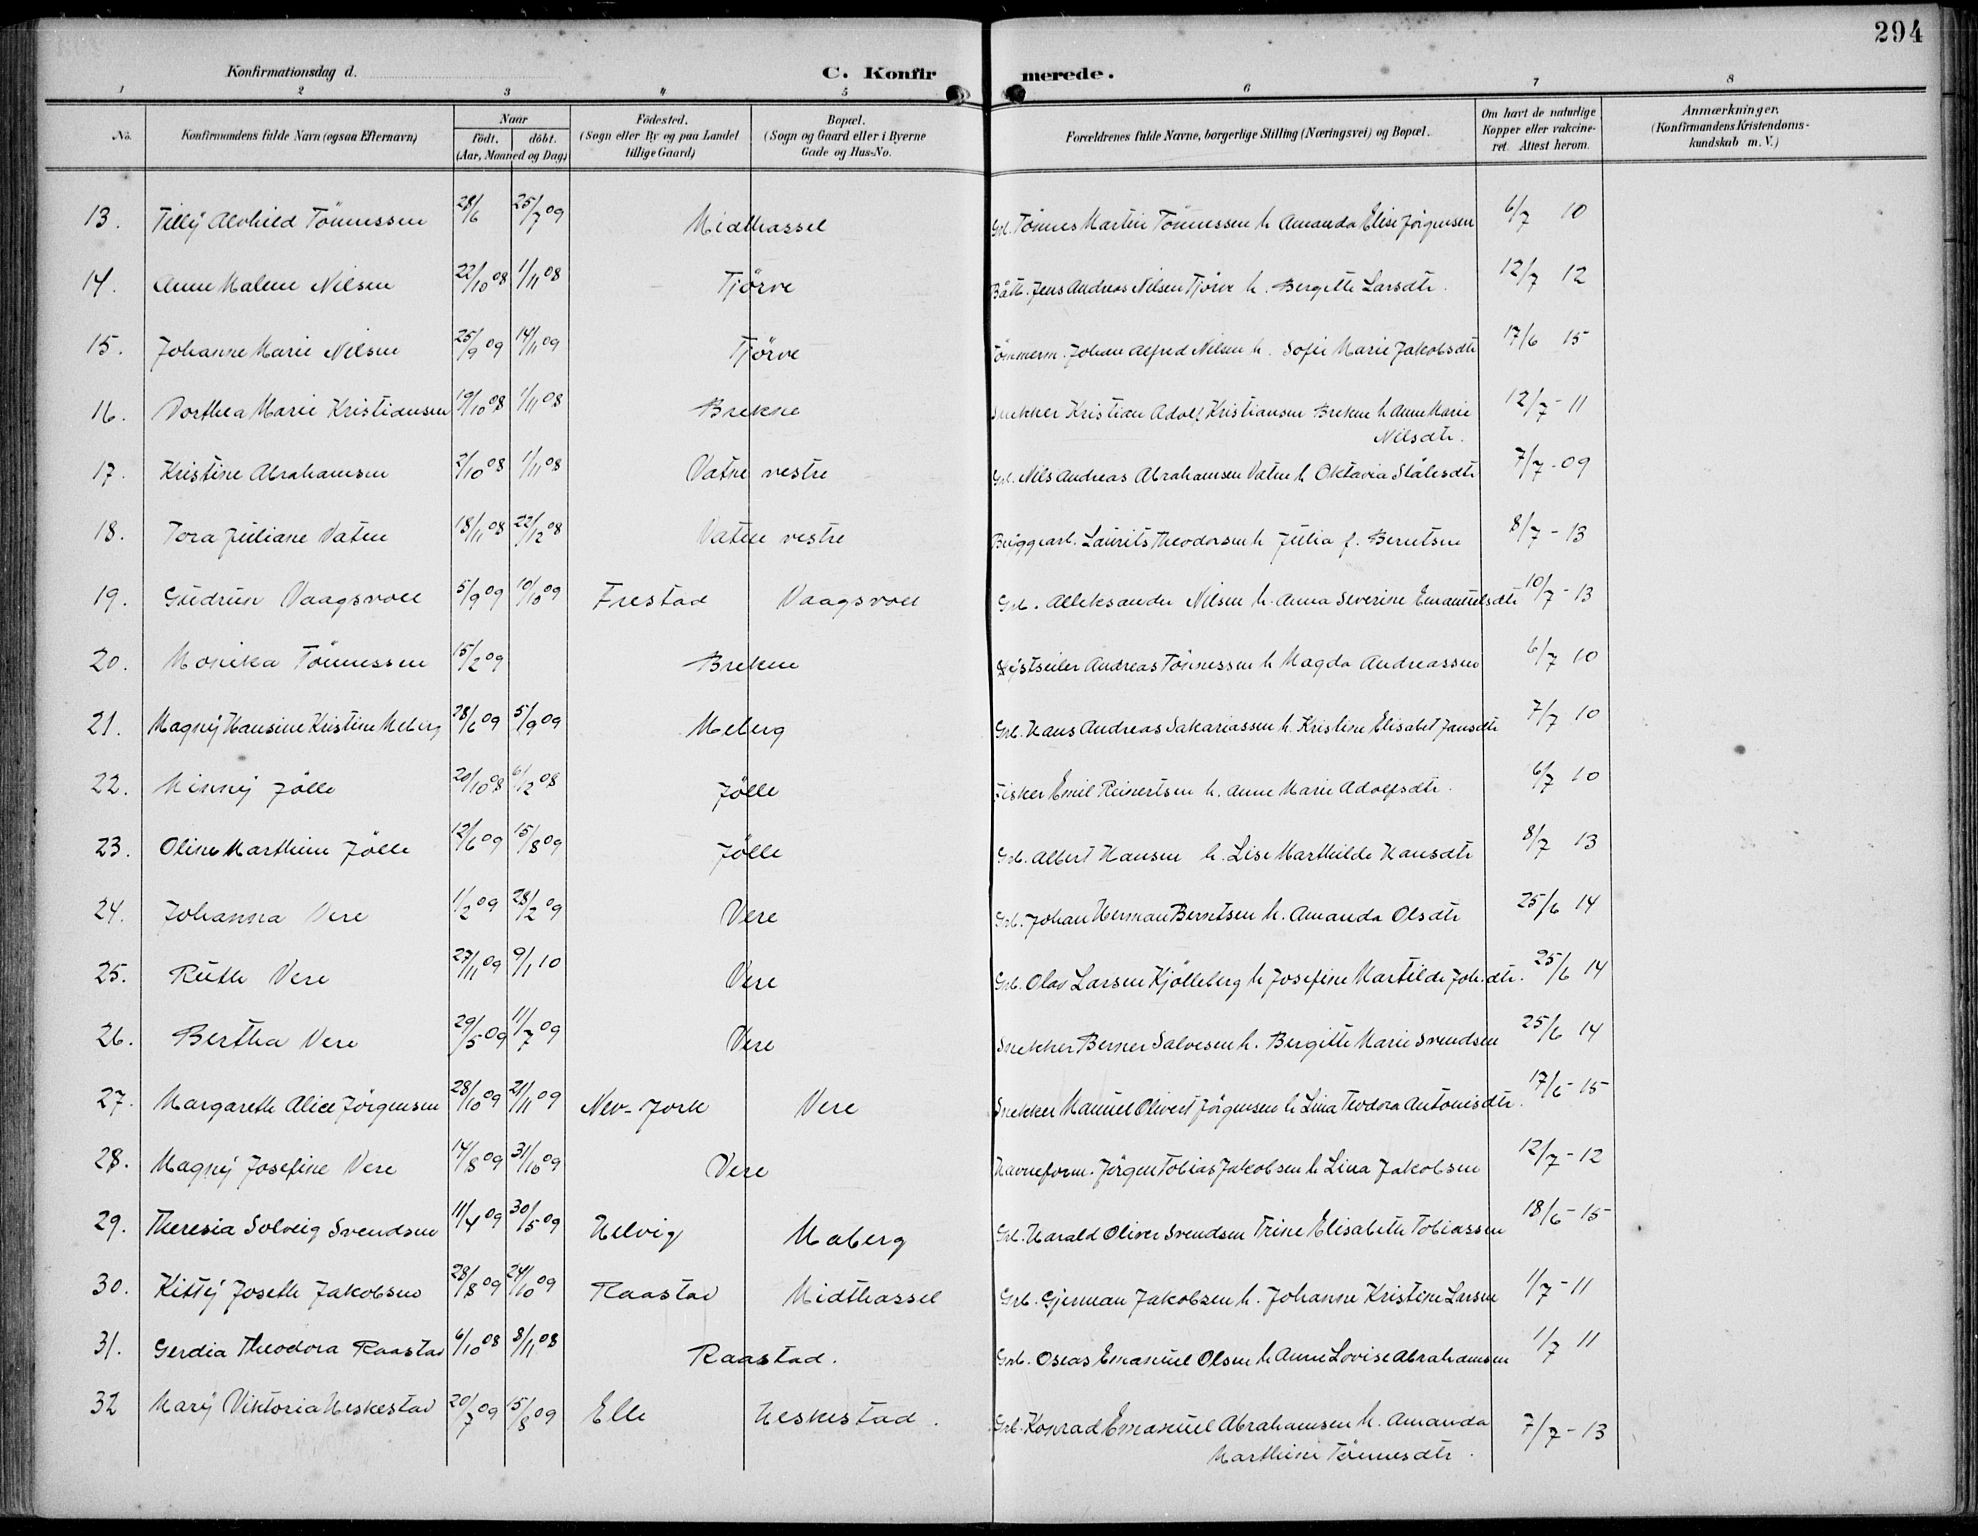 294
Konfirmationsdag d.
C. Konfirmerede.
1 2 3 4 5 6 7 8
No.
Konfirmandens fulde Navn (ogsaa Efternavn)
Naar
födt. döbt.
(Aar, Maaned og Dag)
Födested.
(Sogn eller By og paa Landet
tillige Gaard)
Bopæl.
(Sogn og Gaard eller i Byerne
Gade og Hus-No.
Forældrenes fulde Navne, borgerlige Stilling (Næringsvei) og Bopæl.
Om havt de naturlige
Kopper eller vakcine-
ret. Attest herom.
Anmærkninger.
(Konfirmandens Kristendoms-
kundskab m. V.)
13. Tilly Alvhild Tönnessen 28/6 25/7 09 Midthassel Grb. Tönnes Martin Tönnessen h. Amanda Elise Jörgensen 6/7 10
14. Anne Malene Nilsen 22/10 08 1/11 08 Tjörve Jens Andreas Nilsen Tjörve h. Bergitte Larsdtr. 12/7 12
15. Johanne Marie Nilsen 25/9 09 14/11 09 Tjörve Tömmerm. Johan Alfred Nilsen h. Sofie Marie Jakobsdtr 17/6 15
16. Dorthea Marie Kristiansen 19/10 08 1/11 08 Brekne Snekker Kristian Adolf Kristiansen Brekne h. Anne Marie 12/7 - 11
Nilsdtr.
17. Kristine Abrahamsen 2/10 08 1/11 08 Vatne vestre Grb. Nils Andreas Abrahamsen Vatne h. Oktavia Ståhlesdtr 7/7 - 09
18. Tora Juliane Vatne 18/11 08 22/12 08 Vatne vestre Bryggearb. Laurits Theodorsen h. Julia f. Berntsen 8/7 - 13
19. Gudrun Vaagsvoll 5/9 09 10/10 09 Frestad Vaagsvoll Grb. Alleksander Nilsen h. Anna Severine Emanuelsdtr 10/7 - 13
20. Monika Tönnessen 15/2 09 Brekne Andreas Tönnessen h. Magda Andreassen 6/7 10
21. Magny Hansine Kristine Meberg 28/6 09 5/9 09 Meberg Grb. Hans Andreas Sakariassen h. Kristine Elisabet Jansdtr 7/7 10
22. Minny Jölle 20/10 08 6/12 08 Jölle Fisker Emil Reinertsen h. Anne Marie Adolfsdtr. 6/7 10
23. Oline Marthine Jölle 12/6 09 15/8 09 Jölle Grb. Albert Hansen h. Lise Marthilde Hansdtr 8/7 13
24. Johanna Vere 1/2 09 28/2 09 Vere Grb. Johan Herman Berntsen h. Amanda Olsdtr 25/6 14
25. Ruth Vere 27/11 09 9/1 10 Vere Grb. Olav Larsen Kjölleberg h. Josefine Martilde Joh.dtr. 25/6 14
26. Bertha Vere 29/5 09 11/7 09 Vere Snekker Berner Salvesen h. Birgitte Marie Svendsen 25/6 14
27. Margareth Alice Jörgensen 28/10 09 21/11 09 Nev-Jork Vere Snekker Manuel Olivert Jörgensen h. Lina Teodora Antonisdtr. 17/6 - 15
28. Magny Josefine Vere 14/8 09 31/10 09 Vere Havneform. Jörgen Tobias Jakobsen h. Lina Jakobsen 12/7 - 12
29. Theresia Solveig Svendsen 11/4 09 30/5 09 Helvig Maberg Grb. Harald Oliver Svendsen Trine Elisabeth Tobiassen 18/6 - 15
30. Kitty Joseth Jakobsen 28/8 09 24/10 09 Raastad Midthassel Grb. Gjerman Jakobsen h. Johanne Kristine Larsen 1/7 - 11
31. Gerdia Theodora Raastad 6/10 08 8/11 08 Raastad. Grb. Oseas Emanuel Olsen h. Anne Lovise Abrahamsen 1/7 11
32 Mary Viktoria Heskestad 20/7 09 15/8 09 Elle Heskestad. Grb. Konrad Emanuel Abrahamsen h. Amanda 7/7 - 13
Marthine Tönnesdtr.